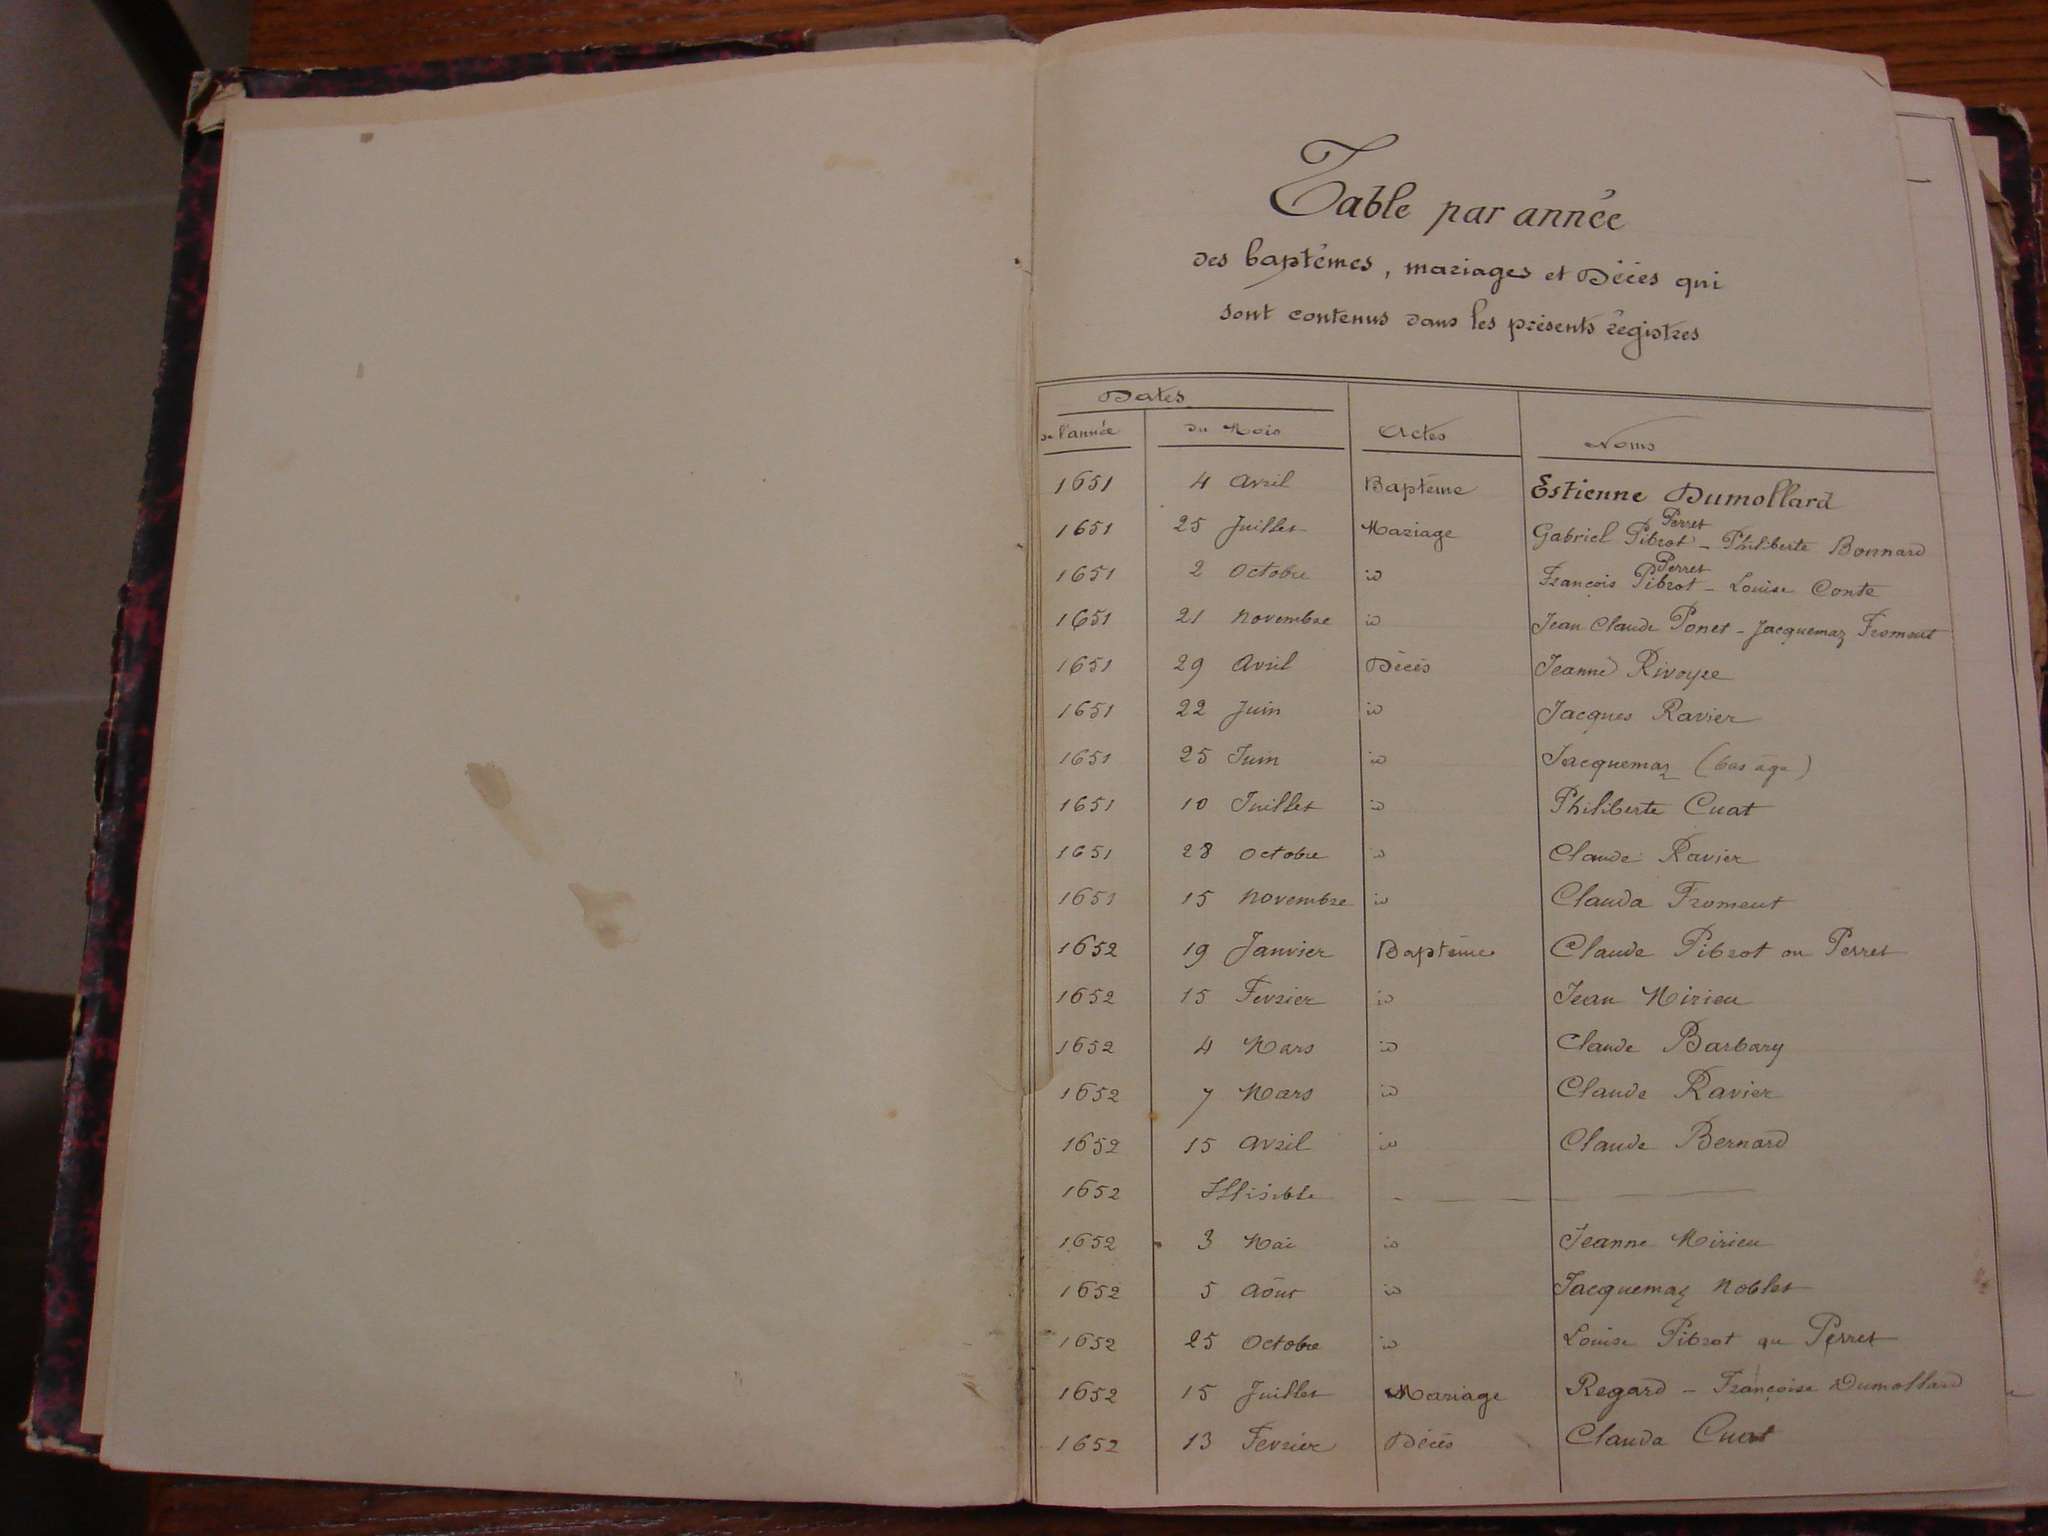 Table par année
des baptêmes, mariages et Décès qui
sont contenus dans les présents régistres
Dates
de l'année du Mois Actes Noms
1651 4 Avril Baptême Estienne Dumollard
Perret
1651 25 Juillet Mariage Gabriel Pibrot - Philiberte Bonnard
Perret
1651 2 Octobre id François Pibrot - Louise Conte
1651 21 Novembre id Jean Claude Ponet - Jacquemaz Froment
1651 29 Avril Décès Jeanne Rivoyre
1651 22 Juin id Jacques Ravier
1651 25 Juin id Jacquemaz (bas âge)
1651 10 Juillet id Philiberte Cuat
1651 28 Octobre id Claude Ravier
1651 15 Novembre id Clauda Froment
1652 19 Janvier Baptême Claude Pibrot ou Perret
1652 15 Fevrier id Jean Mirieu
1652 4 Mars id Claude Barbary
1652 7 Mars id Claude Ravier
1652 15 Avril id Claude Bernard
1652 Illisible - - - -
1652 3 Mai id Jeanne Mirieu
1652 5 Aôut id Jacquemaz Noblet
1652 25 Octobre id Louise Pibrot ou Perret
1652 15 Juillet Mariage Regard - Françoise Dumollard
1652 13 Fevrier Décès Clauda Cuat